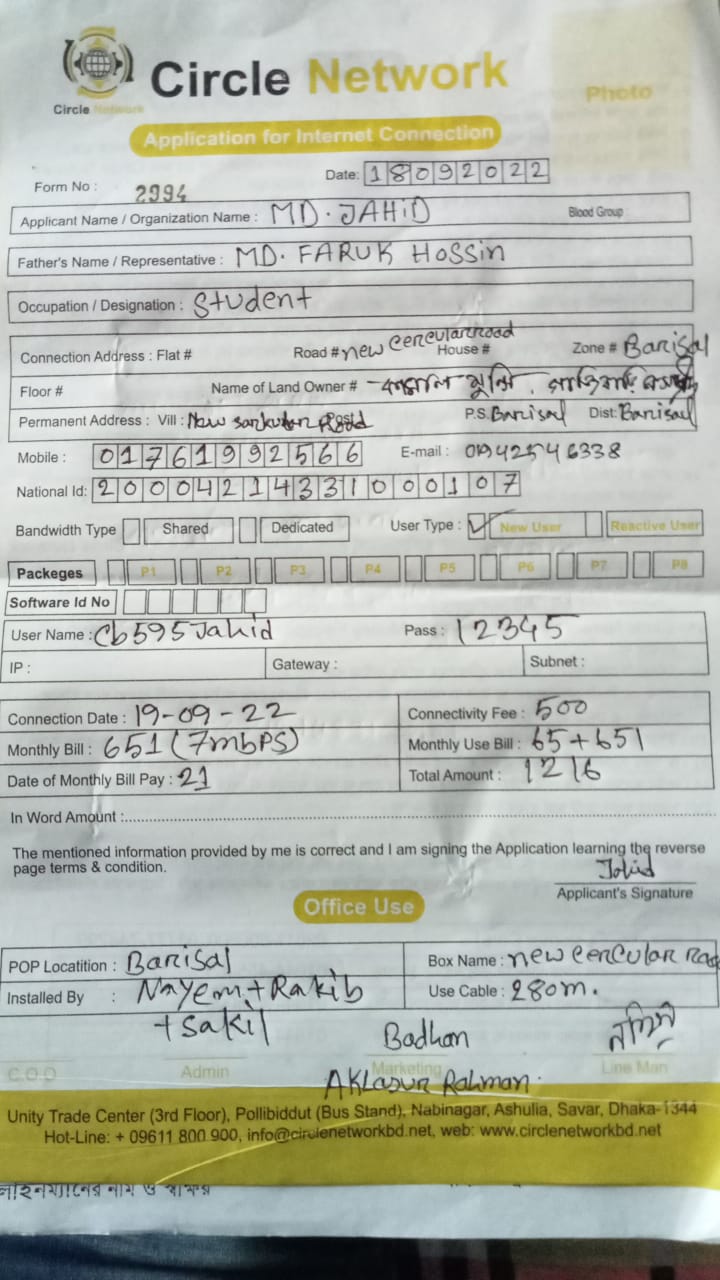 Circle Network
Circle Network
Photo
Application for Internet Connection
Form No : 2994
Date: 18092022
Applicant Name / Organization Name : MD. JAHID
Blood Group
Father's Name / Representative : MD. FARUK HOSSIN
Occupation / Designation : Student
Connection Address : Flat # Road # new cercular road House # Zone # Barisal
Floor # Name of Land Owner #
Permanent Address : Vill : New P.S. Barisal Dist: Barisal
Mobile : 01761992566 E-mail : 01942546338
National Id: 20004214331000107
Bandwidth Type Shared Dedicated User Type : ✓ New User Reactive User
Packeges P1 P2 P3 P4 P5 P6 P7 P8
Software Id No
User Name : Cb595Jahid Pass : 12345
IP : Gateway : Subnet :
Connection Date : 19-09-22 Connectivity Fee : 500
Monthly Bill : 651 (7mbPS) Monthly Use Bill : 65+651
Date of Monthly Bill Pay : 21 Total Amount : 1216
In Word Amount :
The mentioned information provided by me is correct and I am signing the Application learning the reverse
page terms & condition.
Jahid
Applicant's Signature
Office Use
POP Locatition : Barisal Box Name : new cercular
Installed By : Nayem + Rakib Use Cable : 280m.
+ Sakil Badhan
C.O.O Admin Marketing Line Man
AKLASUR Rahman.
Unity Trade Center (3rd Floor), Pollibiddut (Bus Stand), Nabinagar, Ashulia, Savar, Dhaka-1344
Hot-Line: + 09611 800 900, info@circlenetworkbd.net, web: www.circlenetworkbd.net
লাইনম্যানের নাম ও স্বাক্ষর